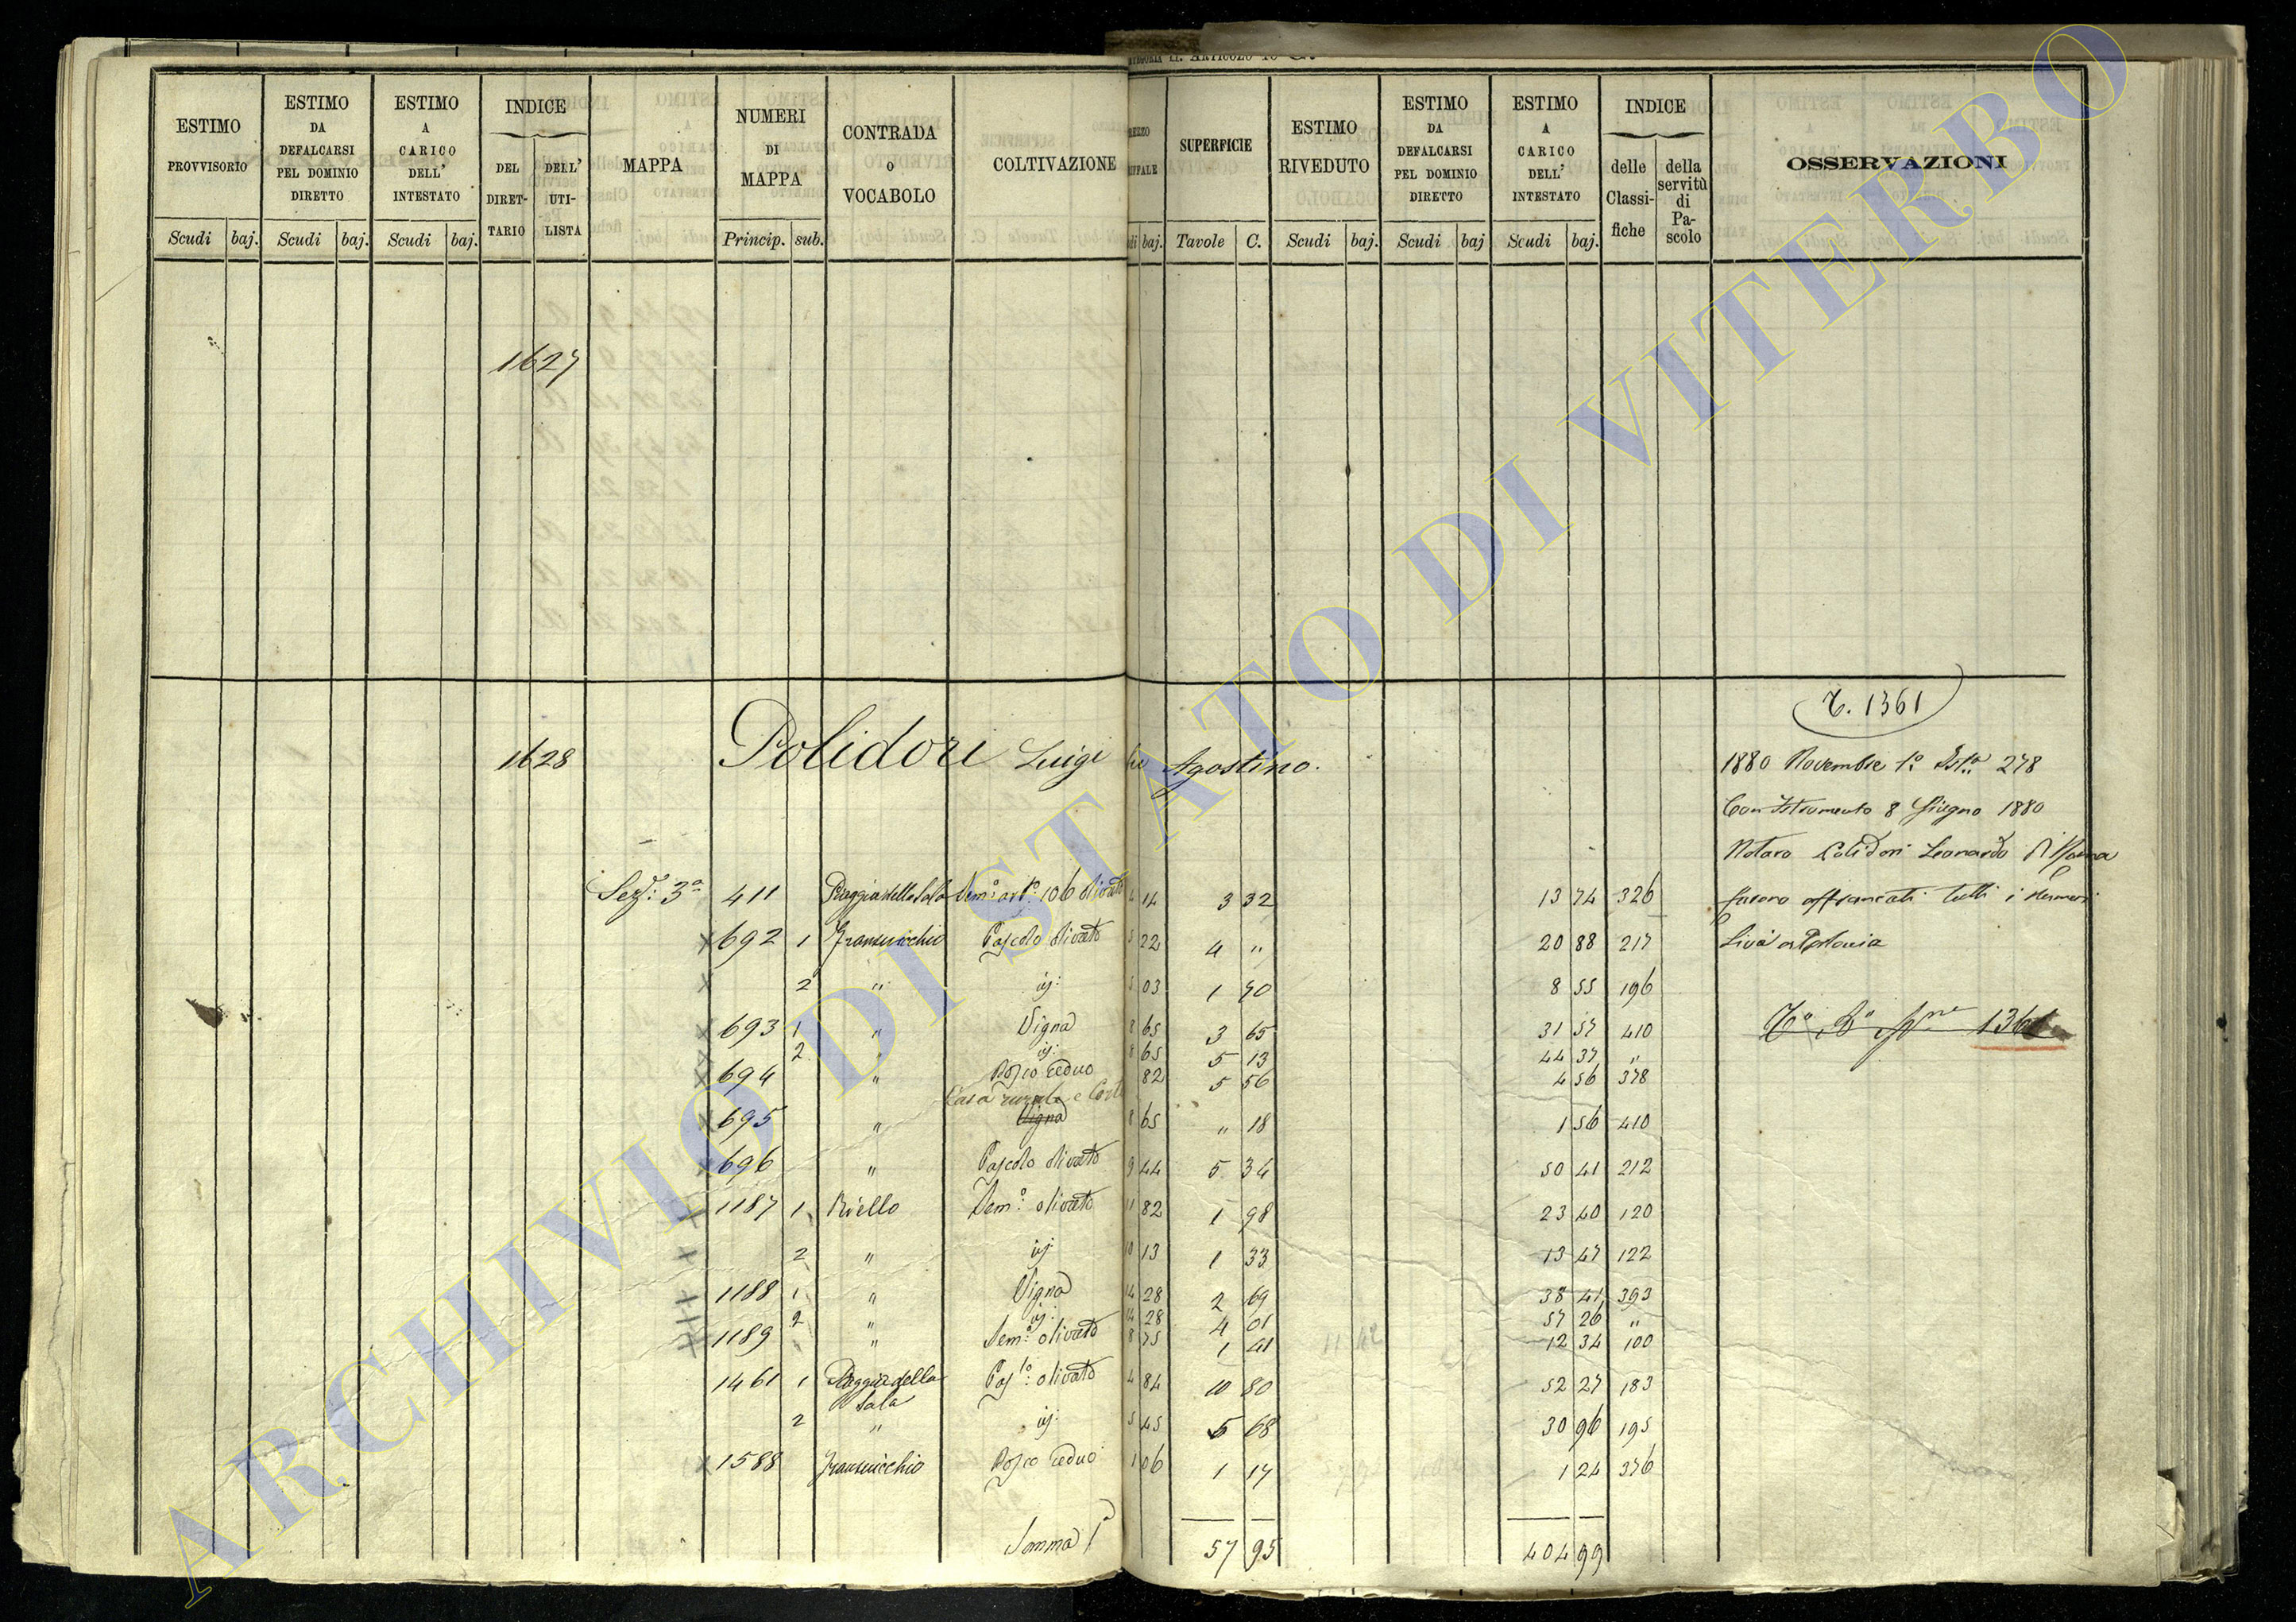 CATEGORIA II. ARTICOLO 10
ESTIMO PROVVISORIO Scudi baj.
ESTIMO DA DEFALCARSI PEL DOMINIO DIRETTO Scudi baj.
ESTIMO A CARICO DELL' INTESTATO Scudi baj.
INDICE DEL DIRET-TARIO DELL' UTI-LISTA
MAPPA
NUMERI DI MAPPA Princip. sub.
CONTRADA O VOCABOLO
COLTIVAZIONE
baj.
SUPERFICIE Tavole C.
ESTIMO RIVEDUTO Scudi baj.
ESTIMO DA DEFALCARSI PEL DOMINIO DIRETTO Scudi baj
ESTIMO A CARICO DELL' INTESTATO Scudi baj.
INDICE delle Classi-fiche della servitù di Pa-scolo
OSSERVAZIONI
1627
1628 Polidori Luigi Agostino.
Sez: 3a 411 Piaggia della Sala Sem: art: 106 olivato 4 14 3 32 13 74 326
692 1 Pascolo olivato 5 22 4 " 20 88 217
2 " id: 5 03 1 70 8 55 196
693 1 " Vigna 8 65 3 65 31 57 410
2 " id: 8 65 5 13 44 37 "
694 " Bosco ceduo 82 5 56 4 56 378
Casa rurale e Corte
695 " Vigna 8 65 " 18 1 56 410
696 " Pascolo olivato 9 44 5 34 50 41 212
1187 1 Riello Sem: olivato 11 82 1 98 23 40 120
2 " id 10 13 1 33 13 47 122
1188 1 " Vigna 14 28 2 69 38 41 393
2 " id: 14 28 4 01 57 26 "
1189 " Sem: olivato 8 75 1 41 12 34 100
1461 1 Piaggia della Sala Pas:lo olivato 4 84 10 80 52 27 183
2 " id: 5 45 5 68 30 96 195
1588 Bosco ceduo 1 06 1 17 1 24 376
Somma 57 95 404 99
T. 1361
1880 Novembre 1° Ista 278
Con Istromento 8 Giugno 1880
Notaro Polidori Leonardo di
furono affrancati tutti i numeri
1361
ARCHIVIO DI STATO DI VITERBO